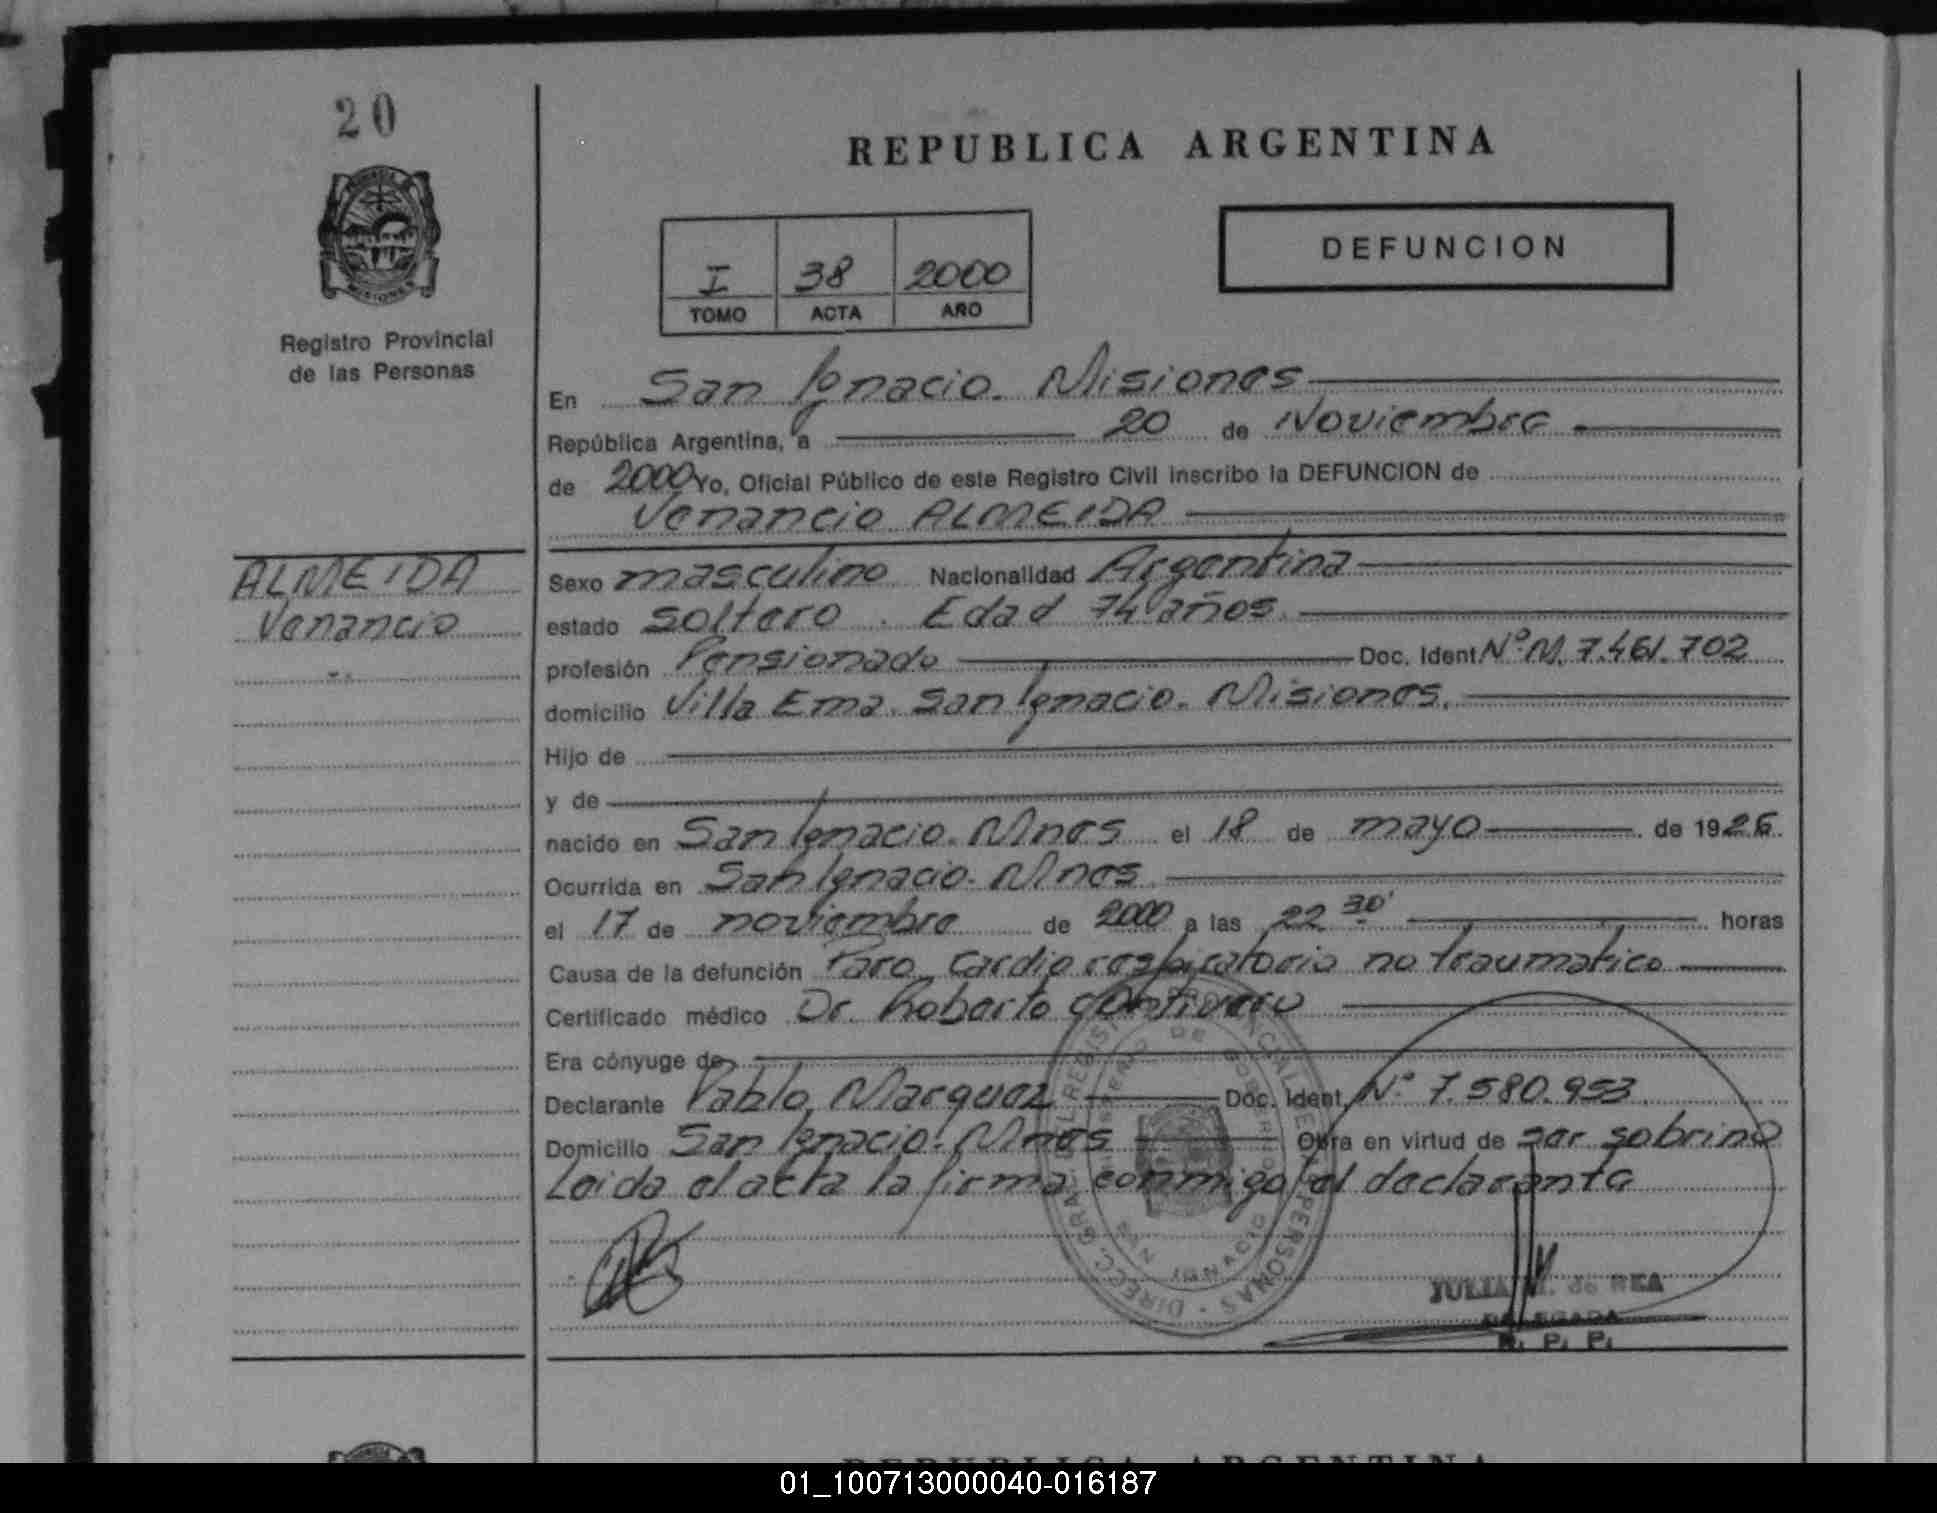 20
REPUBLICA ARGENTINA
DEFUNCION
I 38 2000
TOMO ACTA AÑO
MISIONES
Registro Provincial
de las Personas
En San Ignacio. Misiones
República Argentina, a 20 de Noviembre
de 2000 Yo, Oficial Público de este Registro Civil inscribo la DEFUNCION de
Venancio ALMEIDA
ALMEIDA
Venancio
Sexo masculino Nacionalidad Argentina
estado soltero. Edad 74 años.
profesión Pensionado Doc. Ident. Nº M. 7.461.702
domicilio Villa Ema. San Ignacio. Misiones.
Hijo de
y de
nacido en San Ignacio. Mnes el 18 de mayo de 1926.
Ocurrida en San Ignacio. Mnes.
el 17 de noviembre de 2000 a las 22 30' horas
Causa de la defunción Paro cardio respiratorio no traumatico
Certificado médico Dr. Roberto
Era cónyuge de
Declarante Pablo Marquez Doc. Ident. Nº 7.580.953
Domicilio San Ignacio. Mnes Obra en virtud de ser sobrino
Leida el acta la firma conmigo el declarante
DIRECC. GRAL. DEL REGISTRO PROVINCIAL DE LAS PERSONAS
MINISTERIO DE GOBIERNO
SAN IGNACIO
JULIA M. de REA
DELEGADA
R. P. P.
REPUBLICA ARGENTINA
01_100713000040-016187